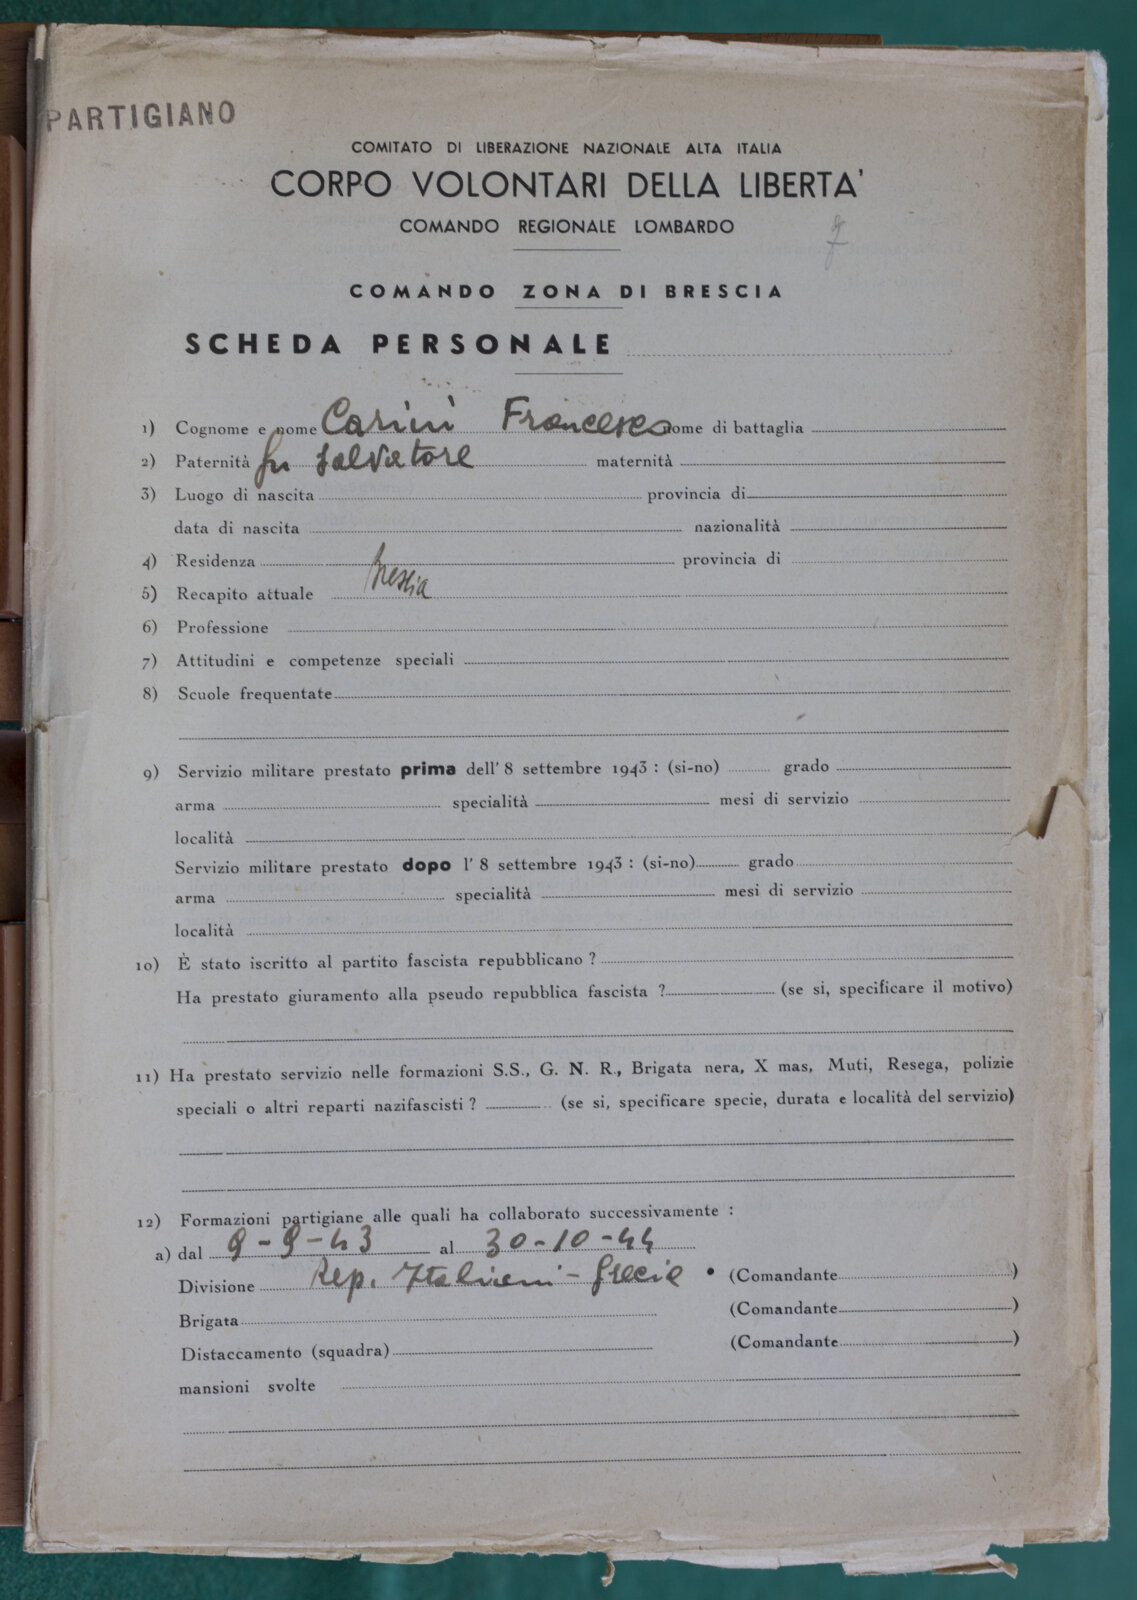 PARTIGIANO
COMITATO DI LIBERAZIONE NAZIONALE ALTA ITALIA
CORPO VOLONTARI DELLA LIBERTA'
COMANDO REGIONALE LOMBARDO
COMANDO ZONA DI BRESCIA
SCHEDA PERSONALE
1) Cognome e nome Carini Francesco nome di battaglia
2) Paternità fu Salvatore maternità
3) Luogo di nascita provincia di
data di nascita nazionalità
4) Residenza provincia di
5) Recapito attuale Brescia
6) Professione
7) Attitudini e competenze speciali
8) Scuole frequentate
9) Servizio militare prestato prima dell'8 settembre 1943 : (si-no) grado
arma specialità mesi di servizio
località
Servizio militare prestato dopo l'8 settembre 1943 : (si-no) grado
arma specialità mesi di servizio
località
10) È stato iscritto al partito fascista repubblicano ?
Ha prestato giuramento alla pseudo repubblica fascista ? (se si, specificare il motivo)
11) Ha prestato servizio nelle formazioni S.S., G. N. R., Brigata nera, X mas, Muti, Resega, polizie
speciali o altri reparti nazifascisti ? (se si, specificare specie, durata e località del servizio)
12) Formazioni partigiane alle quali ha collaborato successivamente :
a) dal 9-9-43 al 30-10-44
Divisione Rep. Italiani - Grecia (Comandante )
Brigata (Comandante )
Distaccamento (squadra) (Comandante )
mansioni svolte